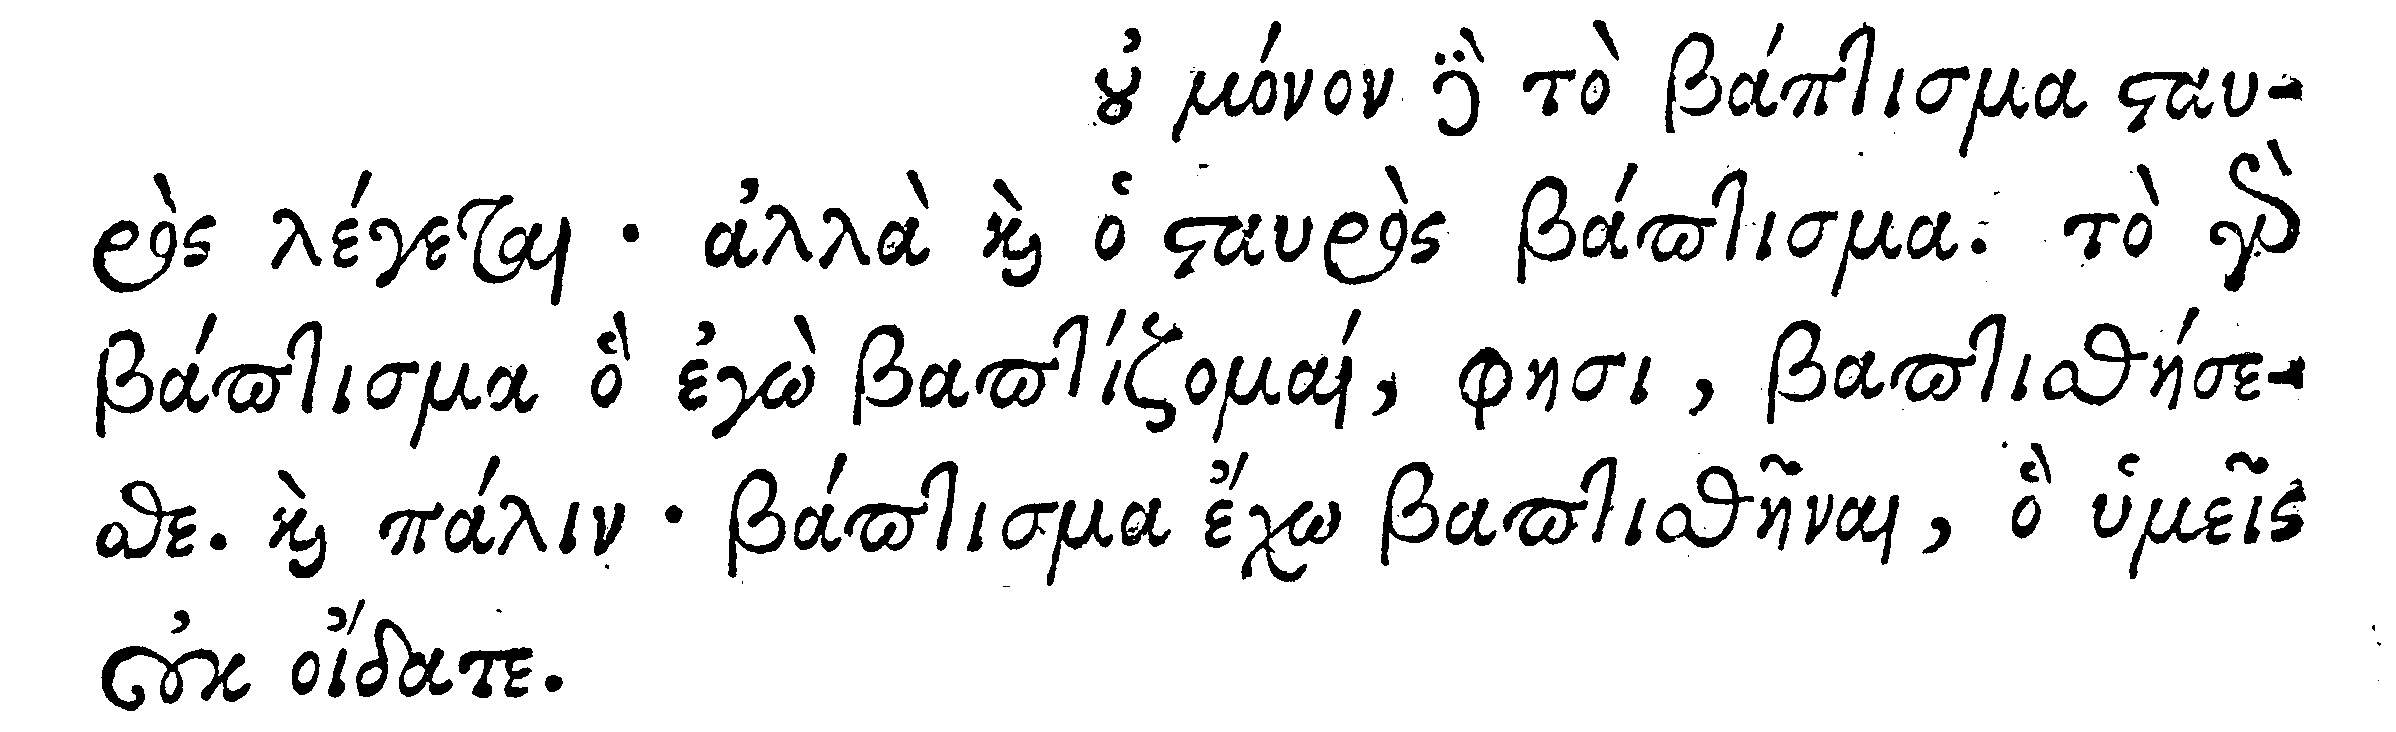 οὐ μόνον δὲ τὸ βάπτισμα σταυ-
ρὸς λέγεται· ἀλλὰ καὶ ὁ σταυρὸς βάπτισμα. τὸ γὰρ
βάπτισμα ὃ ἐγὼ βαπτίζομαι, φησι, βαπτισθήσε-
σθε. καὶ πάλιν· βάπτισμα ἔχω βαπτισθῆναι, ὃ ὑμεῖς
οὐκ οἴδατε.